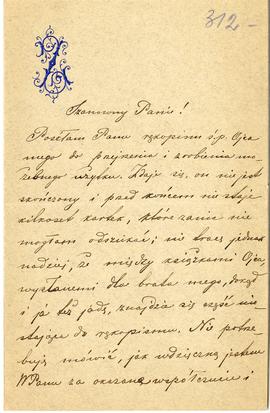 312 -
Szanowny Panie!
Posyłam Panu rękopism ś.p. Ojca
mego do przejrzenia i zrobienia mo-
żebnego użytku. Zdaje się, on nie jest
skończony i przed końcem nie staje
kilkoset kartek, które zanie nie
mogłam odszukać; nie tracę jednak
nadziei, że między książkami Ojca
wysłanemi dla brata mego, dokąd
i ja też jadę, znajdzie się część nie-
stająca do rękopismu. Nie potrze-
buję mówić, jak wdzięczną jestem
WPanu za okazane współczucie i